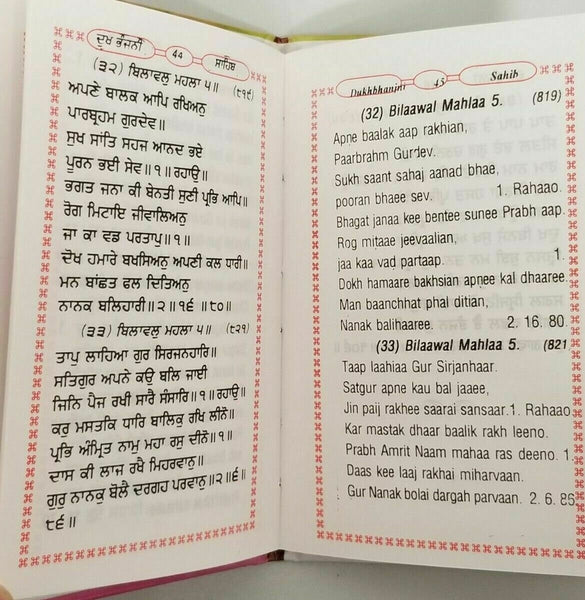 ਦੁਖ ਭੰਜਨੀ 44 ਸਾਹਿਬ
(੩੨) ਬਿਲਾਵਲੁ ਮਹਲਾ ੫॥ (੮੧੯)
ਅਪਣੇ ਬਾਲਕ ਆਪਿ ਰਖਿਅਨੁ
ਪਾਰਬ੍ਰਹਮ ਗੁਰਦੇਵ॥
ਸੁਖ ਸਾਂਤਿ ਸਹਜ ਆਨਦ ਭਏ
ਪੂਰਨ ਭਈ ਸੇਵ॥੧॥ਰਹਾਉ॥
ਭਗਤ ਜਨਾ ਕੀ ਬੇਨਤੀ ਸੁਣੀ ਪ੍ਰਭਿ ਆਪਿ॥
ਰੋਗ ਮਿਟਾਇ ਜੀਵਾਲਿਅਨੁ
ਜਾ ਕਾ ਵਡ ਪਰਤਾਪੁ॥੧॥
ਦੋਖ ਹਮਾਰੇ ਬਖਸਿਅਨੁ ਅਪਣੀ ਕਲ ਧਾਰੀ॥
ਮਨ ਬਾਂਛਤ ਫਲ ਦਿਤਿਅਨੁ
ਨਾਨਕ ਬਲਿਹਾਰੀ॥੨॥੧੬॥੮੦॥
(੩੩) ਬਿਲਾਵਲੁ ਮਹਲਾ ੫॥ (੮੨੧)
ਤਾਪੁ ਲਾਹਿਆ ਗੁਰ ਸਿਰਜਨਹਾਰਿ॥
ਸਤਿਗੁਰ ਅਪਨੇ ਕਉ ਬਲਿ ਜਾਈ
ਜਿਨਿ ਪੈਜ ਰਖੀ ਸਾਰੈ ਸੰਸਾਰਿ॥੧॥ਰਹਾਉ॥
ਕਰੁ ਮਸਤਕਿ ਧਾਰਿ ਬਾਲਿਕੁ ਰਖਿ ਲੀਨੋ॥
ਪ੍ਰਭਿ ਅੰਮ੍ਰਿਤ ਨਾਮੁ ਮਹਾ ਰਸੁ ਦੀਨੋ॥੧॥
ਦਾਸ ਕੀ ਲਾਜ ਰਖੈ ਮਿਹਰਵਾਨੁ॥
ਗੁਰੁ ਨਾਨਕੁ ਬੋਲੈ ਦਰਗਹ ਪਰਵਾਨੁ॥੨॥੬॥
੮੬॥
Dukhbhanjni 45 Sahib
(32) Bilaawal Mahlaa 5. (819)
Apne baalak aap rakhian,
Paarbrahm Gurdev.
Sukh saant sahaj aanad bhae,
pooran bhaee sev. 1. Rahaao.
Bhagat janaa kee bentee sunee Prabh aap.
Rog mitaae jeevaalian,
jaa kaa vad partaap. 1.
Dokh hamaare bakhsian apnee kal dhaaree.
Man baanchhat phal ditian,
Nanak balihaaree. 2. 16. 80
(33) Bilaawal Mahlaa 5. (821
Taap laahiaa Gur Sirjanhaar.
Satgur apne kau bal jaaee,
Jin paij rakhee saarai sansaar.1. Rahaao
Kar mastak dhaar baalik rakh leeno.
Prabh Amrit Naam mahaa ras deeno. 1.
Daas kee laaj rakhai miharvaan.
Gur Nanak bolai dargah parvaan. 2. 6. 86